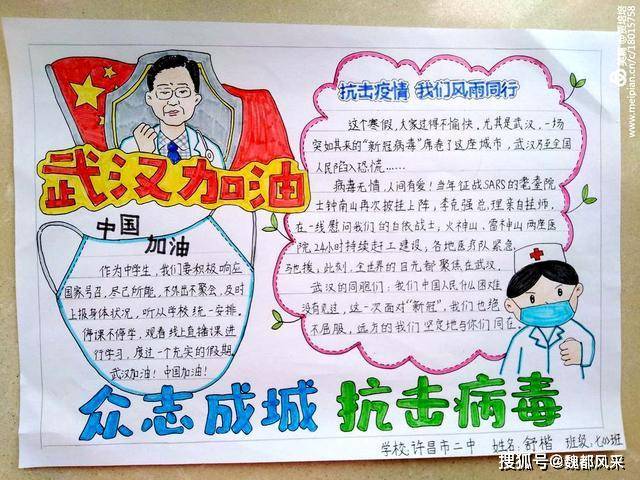 武汉加油
中国
加油
作为中学生，我们要积极响应
国家号召，尽己所能，不外出不聚会，及时
上报身体状况，听从学校统一安排。
停课不停学，观看线上直播课进
行学习，度过一个充实的假期。
武汉加油！中国加油！
抗击疫情 我们风雨同行
这个寒假，大家过得不愉快，尤其是武汉，一场
突如其来的“新冠病毒”席卷了这座城市，武汉乃至全国
人民陷入恐慌……
病毒无情，人间有爱！当年征战SARS的老
士钟南山再次披挂上阵，李克强总理亲自挂帅，
在一线慰问我们的白衣战士，火神山、雷神山两座医
院24小时持续赶工建设，各地医疗队紧急
驰援，此刻，全世界的目光都聚焦在武汉。
武汉的同胞们：我们中国人民什么困难
没有见过，这一次面对“新冠”，我们也绝
不屈服，远方的我们坚定地与你们同在。
众志成城 抗击病毒
学校：许昌市二中 姓名：舒楷 班级：七班
美篇
www.meipian.cn/c/18015758
搜狐号@魏都风采